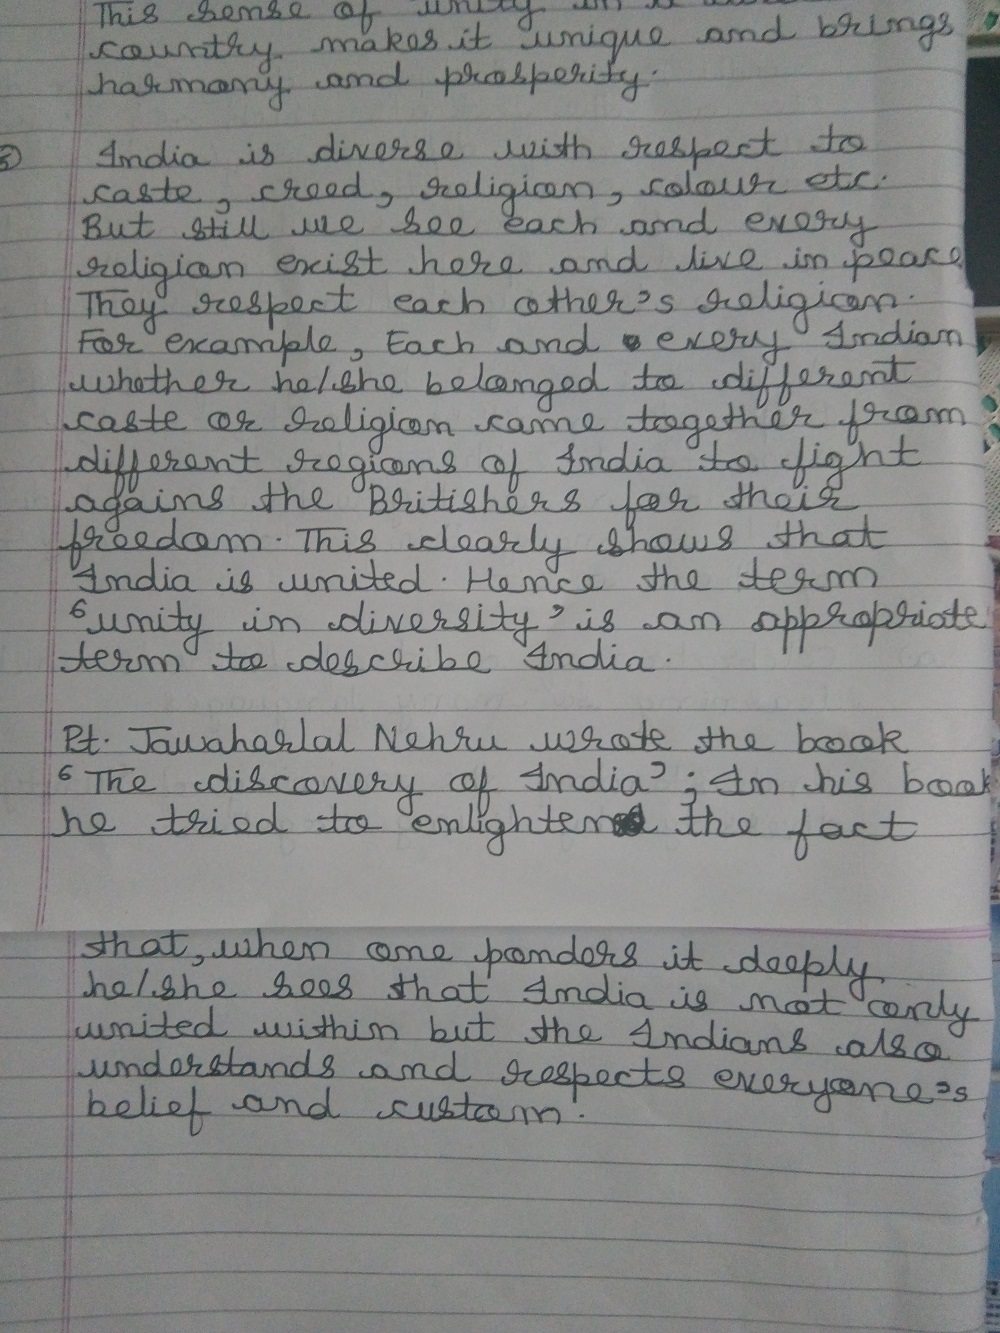 This sense of unity in a
country makes it unique and brings
harmony and prosperity.
India is diverse with respect to
caste, creed, religion, colour etc.
But still we see each and every
religion exist here and live in peace
They respect each other's religion.
For example, Each and every Indian
whether he/she belonged to different
caste or religion came together from
different regions of India to fight
agains the Britishers for their
freedom. This clearly shows that
India is united. Hence the term
'unity in diversity' is an appropriate
term to describe India.
Pt. Jawaharlal Nehru wrote the book
'The discovery of India'; In his book
he tried to enlighten the fact
that, when one ponders it deeply
he/she sees that India is not only
united within but the Indians also
understands and respects everyone's
belief and custom.